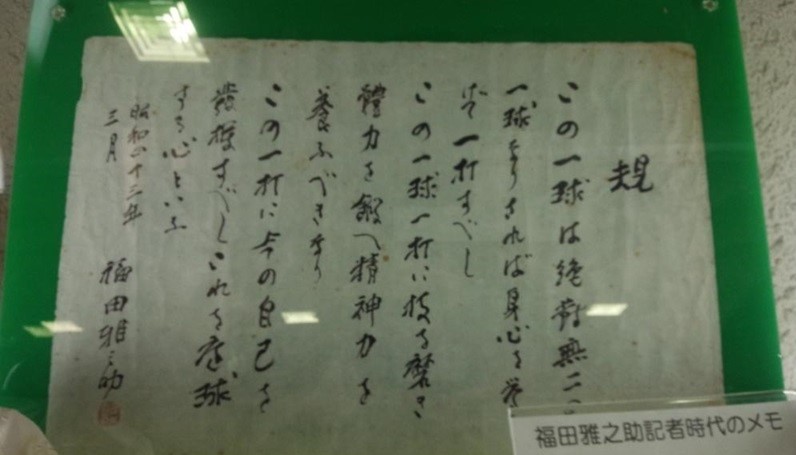 規
この一球は絶對無二の
一球なりされば身心を挙
げて一打すべし
この一球一打に技を磨き
體力を鍛へ精神力を
養ふべきなり
この一打に今の自己を
發揮すべしこれを庭球
する心といふ
昭和四十三年
三月 福田雅之助
福田雅之助記者時代のメモ